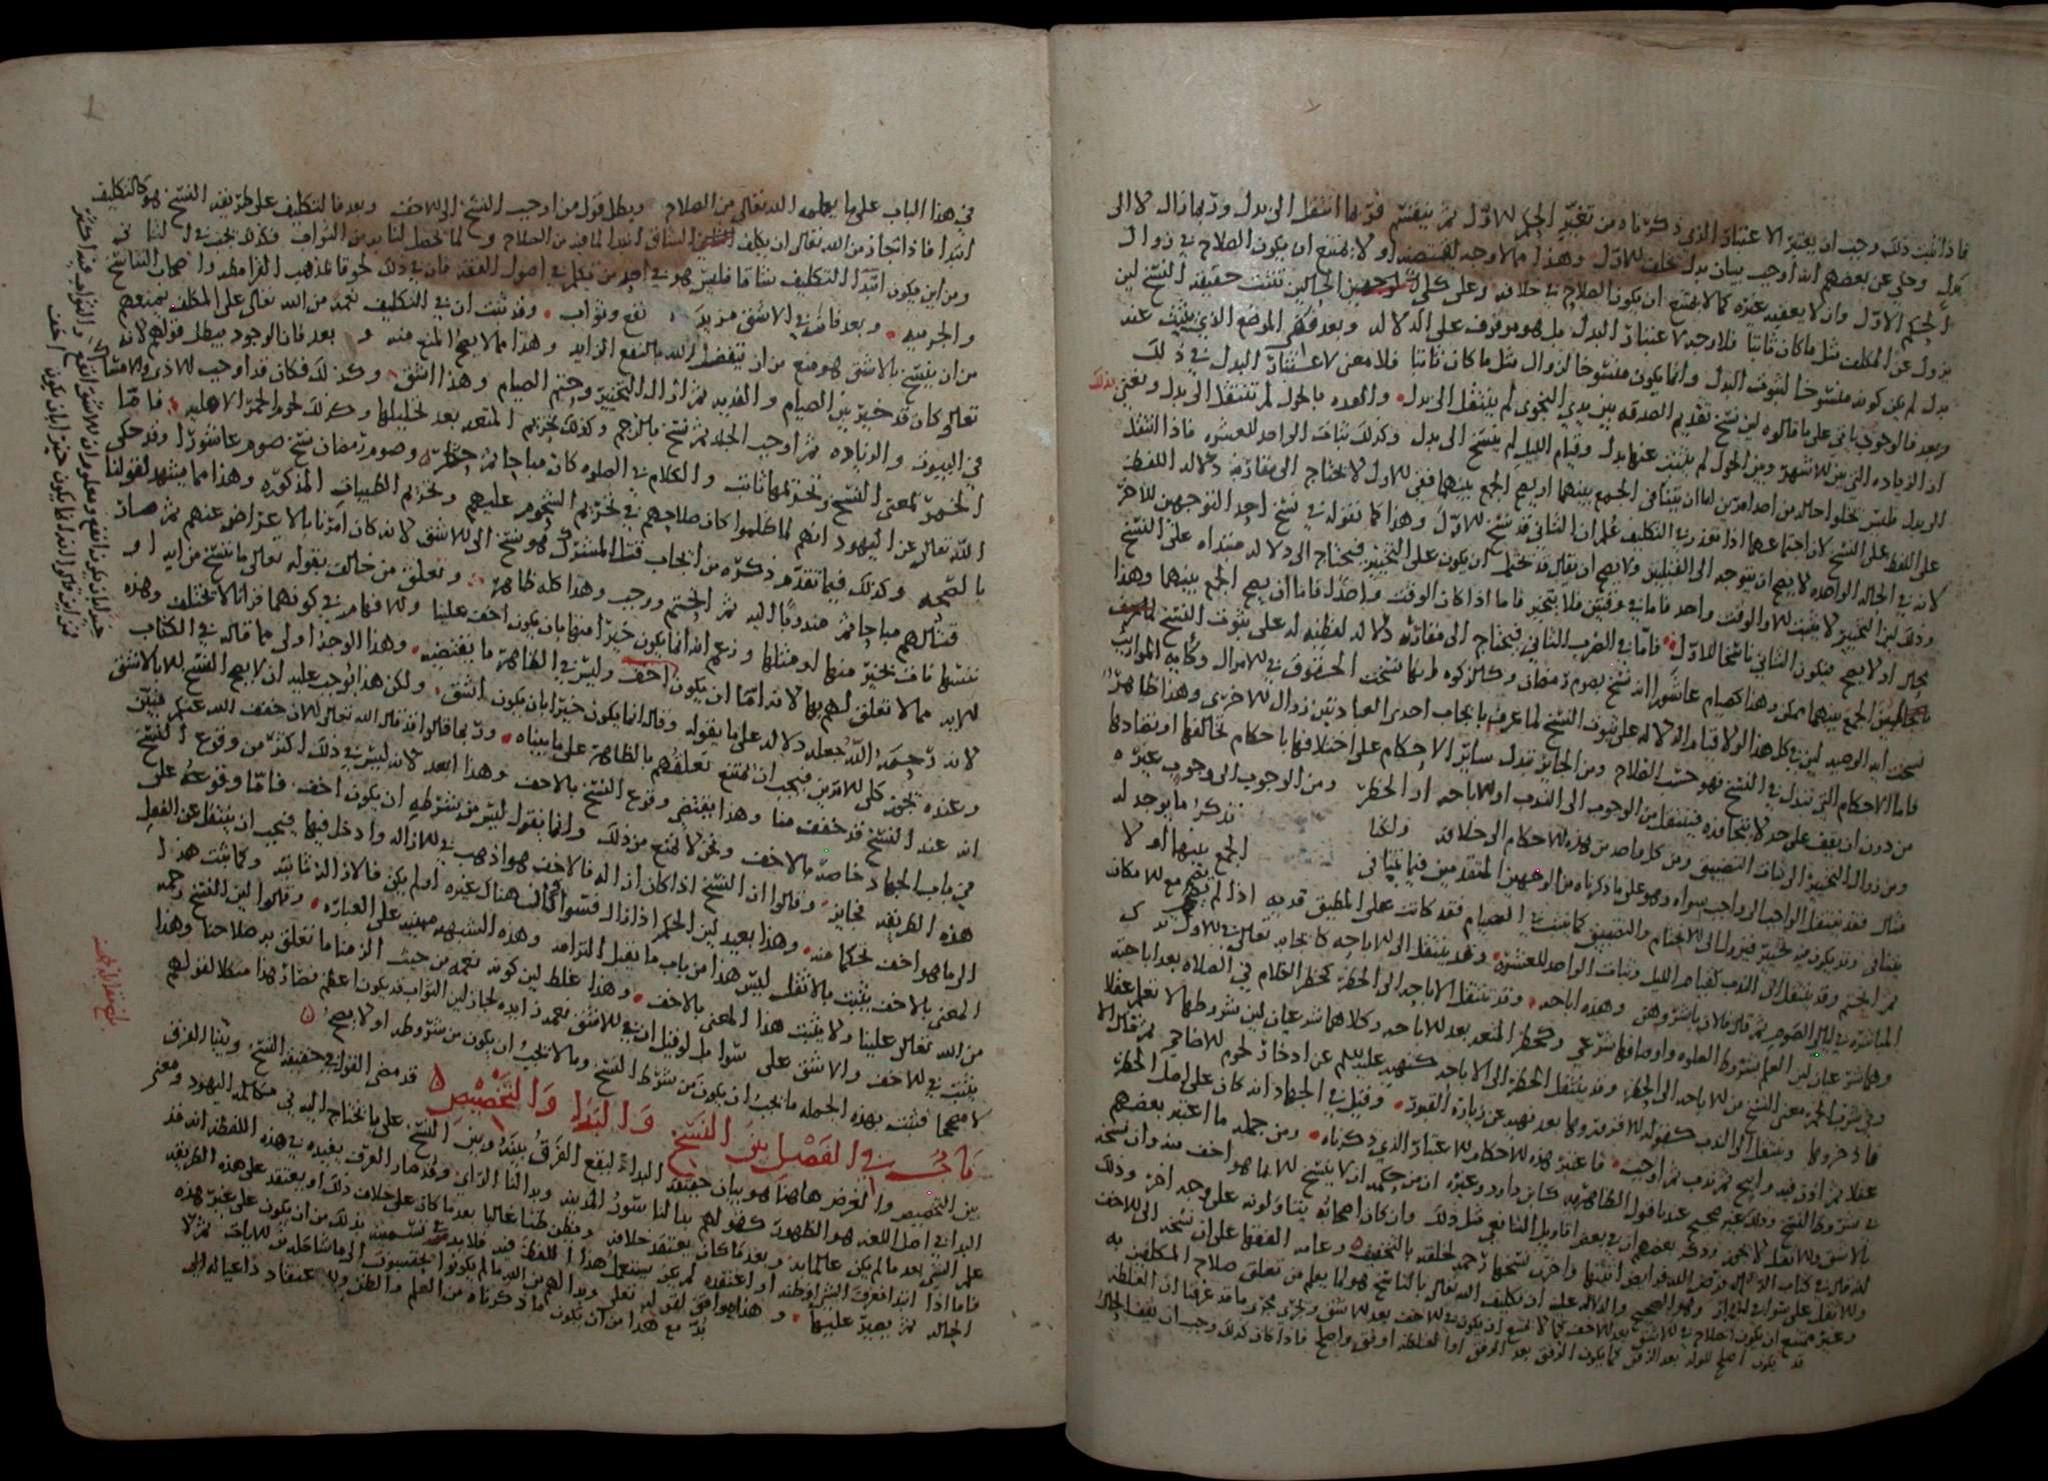 فاذا ثبت ذلك وجب ان يعتبر الاعتبار الذي ذكرناه من تغير الحكم الاول ثم ينقسم فربما انتقل الى بدل وربما زال لا الى
بدل وحكي عن بعضهم انه اوجب بيان بدل يخلف الاول وهذا مما لا وجه يقتضيه اولا يمتنع ان يكون الصلاح في زوال
الحكم الاول وان لا يعقبه غيره كما لا يمتنع ان يكون الصلاح في خلافه وعلى كلى الحالين تثبت حقيقة النسخ لان
يزول عن المكلف مثل ما كان ثابتا فلا وجه لاعتبار البدل بل هو موقوف على الدلالة وبعد ففي الموضع الذي يثبت عنه
بدل لم يكن كونه منسوخا لثبوت البدل وانما يكون منسوخا لزوال مثل ما كان ثابتا فلا معنى لاعتبار البدل في ذلك
وبعد فالوجود ياتي على ما قالوه لان نسخ تقديم الصدقة بين يدي النجوى لم ينتقل الى بدل والعدة بالحول لم تنتقل الى بدل ونعني بذلك
ان الزيادة التي بين الاشهر وبين الحول لم يثبت عنها بدل وقيام الليل لم ينسخ الى بدل وكذلك ثبات الواحد للعشرة فاذا انتقل
الى بدل فليس يخلو حاله من احد امرين اما ان يتنافى الجمع بينهما او يصح الجمع بينهما ففي الاول لا يحتاج الى مقارنة دلالة اللفظ
على اللفظ على النسخ لان اجتماعهما اذا تعذر في التكليف علم ان الثاني قد نسخ الاول وهذا كما نقوله في نسخ احد التوجهين للاخر
لانه في الحالة الواحدة لا يصح ان يتوجه الى القبلتين ولا يصح ان يقال قد يحتمل ان يكون على التخيير فيحتاج الى دلالة مبتداه على النسخ
وذلك لان التخيير لا يثبت الا والوقت واحد فاما في وقتين فلا يتخير فاما اذا كان الوقت واحدا فاما ان يصح الجمع بينهما وهذا
محال او لا يصح فيكون الثاني ناسخا للاول فاما في الضرب الثاني فيحتاج الى مقارنة دلالة لفظية له على ثبوت النسخ
الجمع بينهما ممكن وهذا كصيام عاشورا انه نسخ بصوم رمضان وكالزكوه انها نسخت الحقوق في الاموال وكاية المواريث
نسخت اية الوصية لان في كل هذا لولا قيام الدلالة على ثبوت النسخ لما عرف بايجاب احدى العبادتين زوال الاخرى وهذا ظاهر
فاما الاحكام التي تتبدل في النسخ فهو حسب الصلاح ومن الجايز تبدل ساير الاحكام على اختلافها باحكام تخالفها او تضادها
من دون ان يقف على حد لا يتجاوزه فينتقل من الوجوب الى الندب او الاباحة او الحظر ومن الوجوب الى وجوب غيره
ومن زوال التخيير الى ثبات التضييق ومن كل واحد من هذه الاحكام الى خلافه ولكنا نذكر ما يوجد له
مثال فقد ينتقل الواجب الى واجب سواه وهو على ما ذكرناه من الوجهين المتقدمين فيما يتنافى الجمع بينهما او لا
يتنافى وقد يكون فيه تخيير فيزول الى الانحتام والتضييق كما يثبت في الصيام فقد كانت على المطيق فدية اذا لم يصم مع الامكان
ثم انحتم وقد ينتقل الى الندب كقيام الليل وثبات الواحد للعشرة وقد ينتقل الى الاباحة كما نجاه تعالى في الاول ترك
المباشرة في ليالي الصوم ثم قال فالان باشروهن وهذه اباحة وقد تنتقل الاباحة الى الحظر كحظر الكلام في الصلاة بعد اباحته
وهما شرعيان لان العلم بشروط الصلوه واوصافها شرعي وكحظر المتعة بعد الاباحة وكلاهما شرعيان لان شروطها لا تعلم عقلا
وفي شرب الخمر معنى النسخ من الاباحة الى الحظر وقد ينتقل الحظر الى الاباحة كنهيه عليه السلم عن ادخار لحوم الاضاحي ثم قال الا
فادخروها وينتقل الى الندب كقوله الا فزوروها بعد نهيه عن زيارة القبور وقيل في الجهاد انه كان على اصل الحظر
عقلا ثم اذن فيه وابيح ثم ندب ثم اوجب فاعتبر هذه الاحكام الاعتبار الذي ذكرناه ومن جملة ما اعتبر بعضهم
في شروط النسخ وذلك غير صحيح عندنا قول الظاهرية كابن داود وغيره ان من حكمه ان لا ينسخ الا بما هو اخف منه وان نسخه
بالاشق والاثقل لا يجوز وذكر بعضهم ان في بعض اقاويل الشافعي مثل ذلك وان كان اصحابه يتاولونه على وجه اخر وذلك
لقوله في كتاب الرسالة فرض الله فرايض اثبتها واخرى نسخها رحمة لخلقه بالتخفيف وعامة الفقها على ان نسخه الى الاخف
والاثقل على سوا في الجواز وهو الصحيح والدلالة عليه ان تكليف الله تعالى بالناسخ هو لما يعلم من تعلق صلاح المكلفين به
وغير ممتنع ان يكون اصلاح في الاشق بعد الاخف كما لا يمتنع ان يكون في الاخف بعد الاشق ويجري مجرى ما قد عرفنا ان الغلظة
قد يكون اصلح للولد بعد الرفق كما يكون الرفق بعد الرفق او الغلظة اوفق واصلح فاذا كان كذلك وجب ان يقف الحال
في هذا الباب على ما يعلمه الله تعالى من الصلاح ويبطل قول من اوجب النسخ الى الاخف وبعد فالتكليف على طريقة النسخ هو كالتكليف
ابتدا فاذا جاز من الله تعالى ان يكلف الشاق ابتدا لما فيه من الصلاح ولما يحصل لنا به من الثواب فكذلك يجب في النسخ
ومن ابى يكون ابتدا التكليف شاقا فليس هو في احد من تكلم في اصول الفقه فان في ذلك لحوقا بمذهب القرامطة واصحاب التناسخ
والجرمية وبعد فان في الاشق مزيد نفع وثواب وقد ثبت ان في التكليف نعمة من الله تعالى على المكلف فمنعهم
من ان ينسخ بالاشق هو منع من ان يتفضل الله بالنفع الزايد وهذا مما لا يصح المنع منه وبعد فان الوجود يبطل قولهم لانه
تعالى كان قد خير بين الصيام والفدية ثم ازال التخيير وحتم الصيام وهذا اشق وكذلك فكان قد اوجب الاذى والامساك
في البيوت والزياده ثم اوجب الجلد ثم نسخ بالرجم وكذلك تحريم المتعة بعد تحليلها وكذلك لحوم الحمر الاهلية فاما
الخمر فمعنى النسخ وتحريمها ثابت والكلام في الصلوه كان مباحا ثم حظر وصوم رمضان نسخ صوم عاشورا وقد حكى
الله تعالى عن اليهود انهم لما ظلموا كان صلاحهم في تحريم الشحوم عليهم وتحريم الطيبات المذكورة وهذا مما يشهد لقولنا
بالصحه وكذلك فيما تقدم ذكره من ايجاب قتال المشركين هو نسخ الى الاشق لانه كان امرنا بالاعراض عنهم ثم صار
قتالهم مباحا ثم مندوبا اليه ثم انحتم ووجب وهذا كله ظاهر وتعلق من خالف بقوله تعالى ما ننسخ من اية او
ننسها نات بخير منها او مثلها وزعم انه انما يكون خيرا منها بان يكون اخف علينا والافهام في كونهما قرانا لا تختلف وهذه
الاية مما لا تعلق لهم بها لانه اما ان يكون اخف وليس في الظاهر ما يقتضيه وهذا الوجه اولى مما قاله في الكتاب
لانه رحمه الله جعله دلالة على ما يقوله وقال انما يكون خيرا بان يكون اشق ولكن هذا يوجب عليه ان لا يصح النسخ الا بالاشق
وعنده يجوز كلى الامرين فيجب ان يمتنع تعلقهم بالظاهر على ما بيناه وربما قالوا قد قال الله تعالى الان خفف الله عنكم فبين
انه عند النسخ قد خفف عنا وهذا يقتضي وقوع النسخ بالاخف وهذا ابعد لانه ليس في ذلك اكثر من وقوع النسخ
في باب الجهاد خاصة بالاخف ونحن لا نمنع من ذلك وانما نقول ليس من شرطه ان يكون اخف فاما وقوعه على
هذه الطريقة فجايز وقالوا ان النسخ اذا كان ازالة فالاخف هو اذهب في الازالة وادخل فيها فيجب ان ينتقل عن الفعل
الى ما هو اخف تحكما منه وهذا بعيد لان الحكم اذا زال فسوا كان هناك غيره او لم يكن فالازالة ثابتة وكما يثبت هذا
المعنى بالاخف يثبت بالاثقل ليس هذا من باب ما يقبل التزايد وهذه الشبهة مبنية على العبارة وقالوا ان النسخ رحمة
من الله تعالى علينا ولا يثبت هذا المعنى الا بالاخف وهذا غلط لان كونه نعمة من حيث الزمنا ما تعلق به صلاحنا وهذا
يثبت في الاخف والاشق على سوا بل لو قيل ان في الاشق نعمة زايده لجاز لان الثواب قد يكون اعظم فصار هذا مبطلا لقولهم
لا مصححا فثبت بهذه الجملة ما يجب ان يكون من شرط النسخ وما لا يجب ان يكون من شروطه او لا يصح
باب في الفصل بين النسخ والبدا والتخصيص
قد مضى القول في حقيقة النسخ وبينا الفرق
بين التخصيص والغرض هاهنا هو بيان حقيقة البداء ليقع الفرق بينه وبين النسخ على ما يحتاج اليه في مكالمة اليهود ومعنى
البدا في اصل اللغة هو الظهور كقولهم بدا لنا سور المدينة وبدا لنا الراي وقد صار العرف يفيده في هذه اللفظة انه قد
علم الشي بعد ما لم يكن عالما به وبعد ما كان يعتقد خلافه ويظن ظنا غالبا بعد ما كان على خلاف ذلك او يعتقد على هذه الطريقة
فاما اذا ابتدا فعرف الشي او ظنه او اعتقده لم يكن يستعمل هذا اللفظ فيه فلا بد في تسميته بذلك من ان يكون على غير هذه
الحالة ثم يصير عليها وهذا موافق لقوله تعالى وبدا لهم من الله ما لم يكونوا يحتسبون الى ما شاكله من الايات ثم لا
بد مع هذا من ان يكون ما ذكرناه من العلم والظن والاعتقاد داعيا له الى